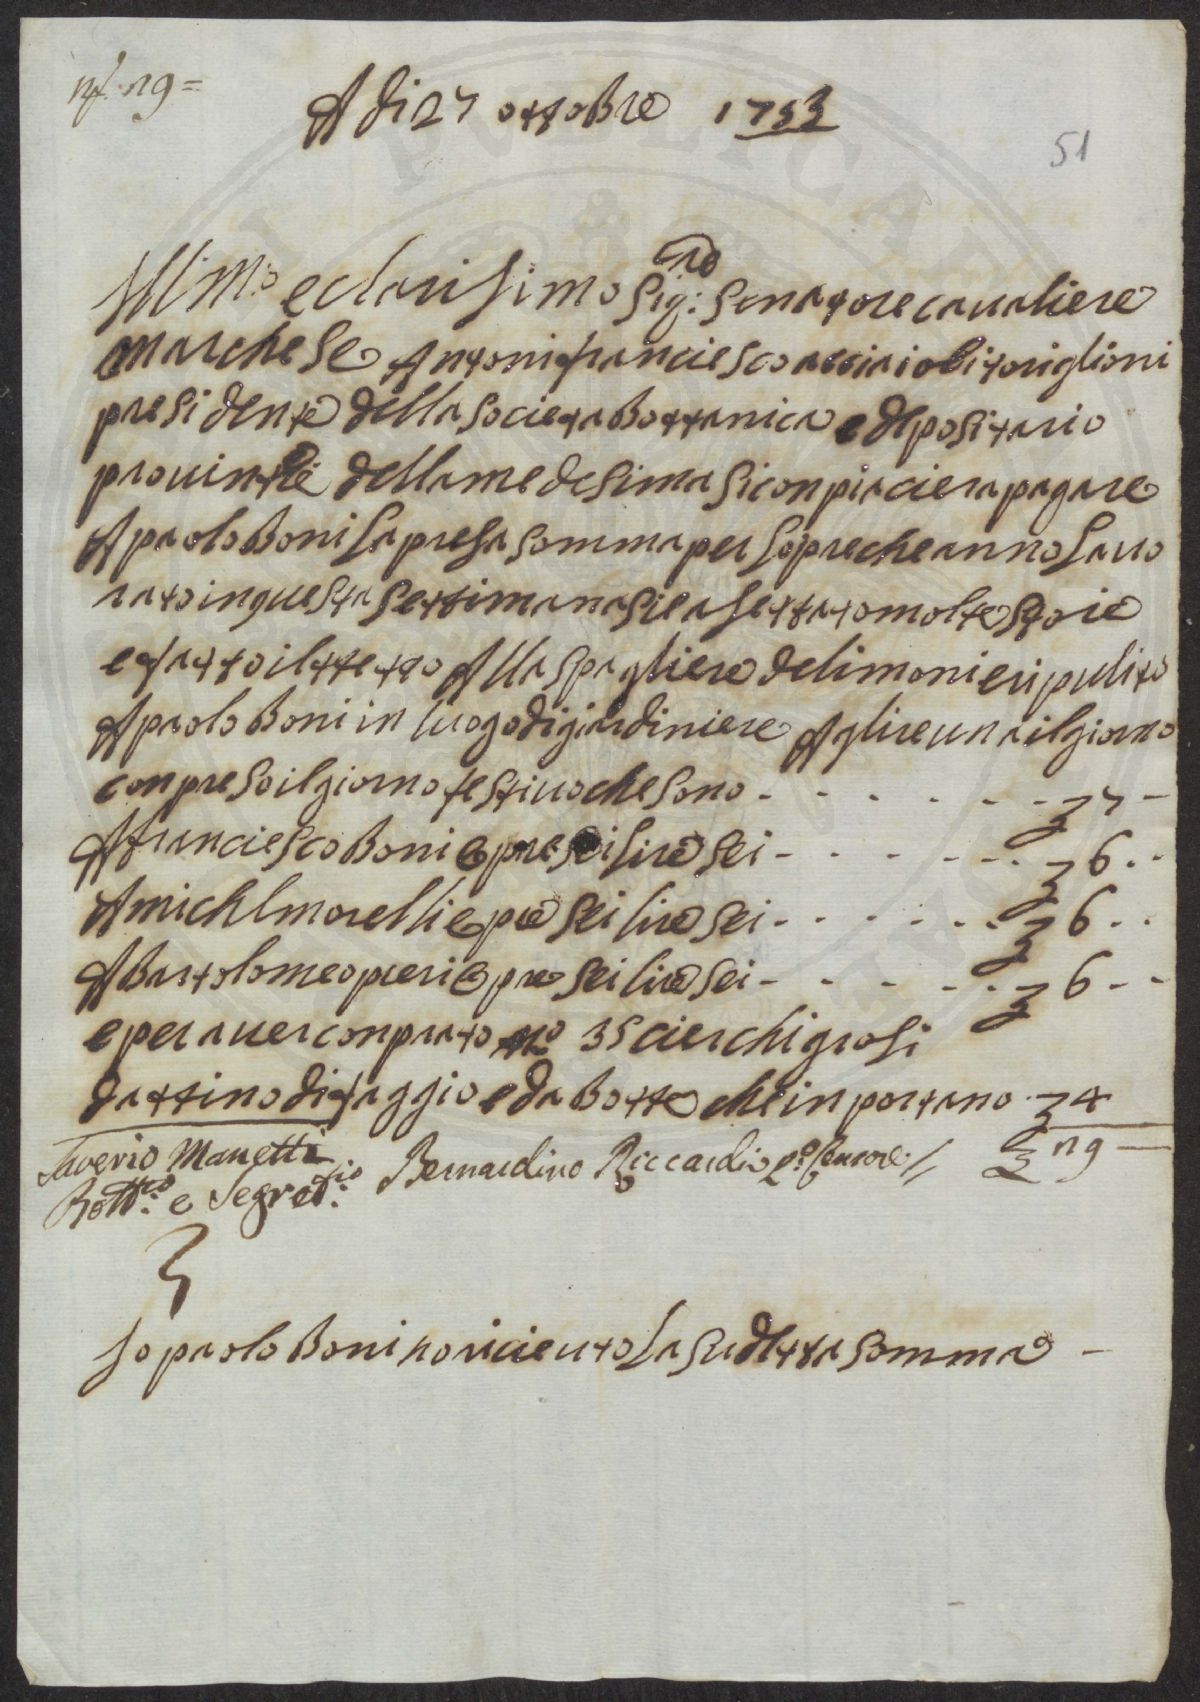 nf. 29=
A di 27 ottobre 1753
51
Ill.mo e clarisimo Sig:re Senatore cavaliere
marchese Antonifranciesco acciaioli toriglioni
presidente della societa Bottanica e depositario
provinte della medesima si conpiaciera pagare
A paolo Boni la presa somma per lopre che anno lavo
rato in questa settimana si e asettato molte stoie
e fatto il ttetto Alla spagliera de limoni e ripulito
A paolo Boni in luogo di giardiniere A glire una il giorno
conpreso il giorno festivo che sono - - - - - - - 7 -
A franciesco Boni e pre sei lire sei - - - - - - 6 - -
A michl morelli e pre sei lire sei - - - - - - 6 - -
A Bartolomeo pieri e pre sei lire sei - - - - - - 6 - -
e per aver conprato no 35 cierchi grosi
da ttino di faggio e da Botte che in portano 4
Saverio Manetti
Bott.co e Segret.rio
Bernardino Riccardi P.o Censore //
29 —
Io paolo Boni ho ricieuto la sudetta somma -